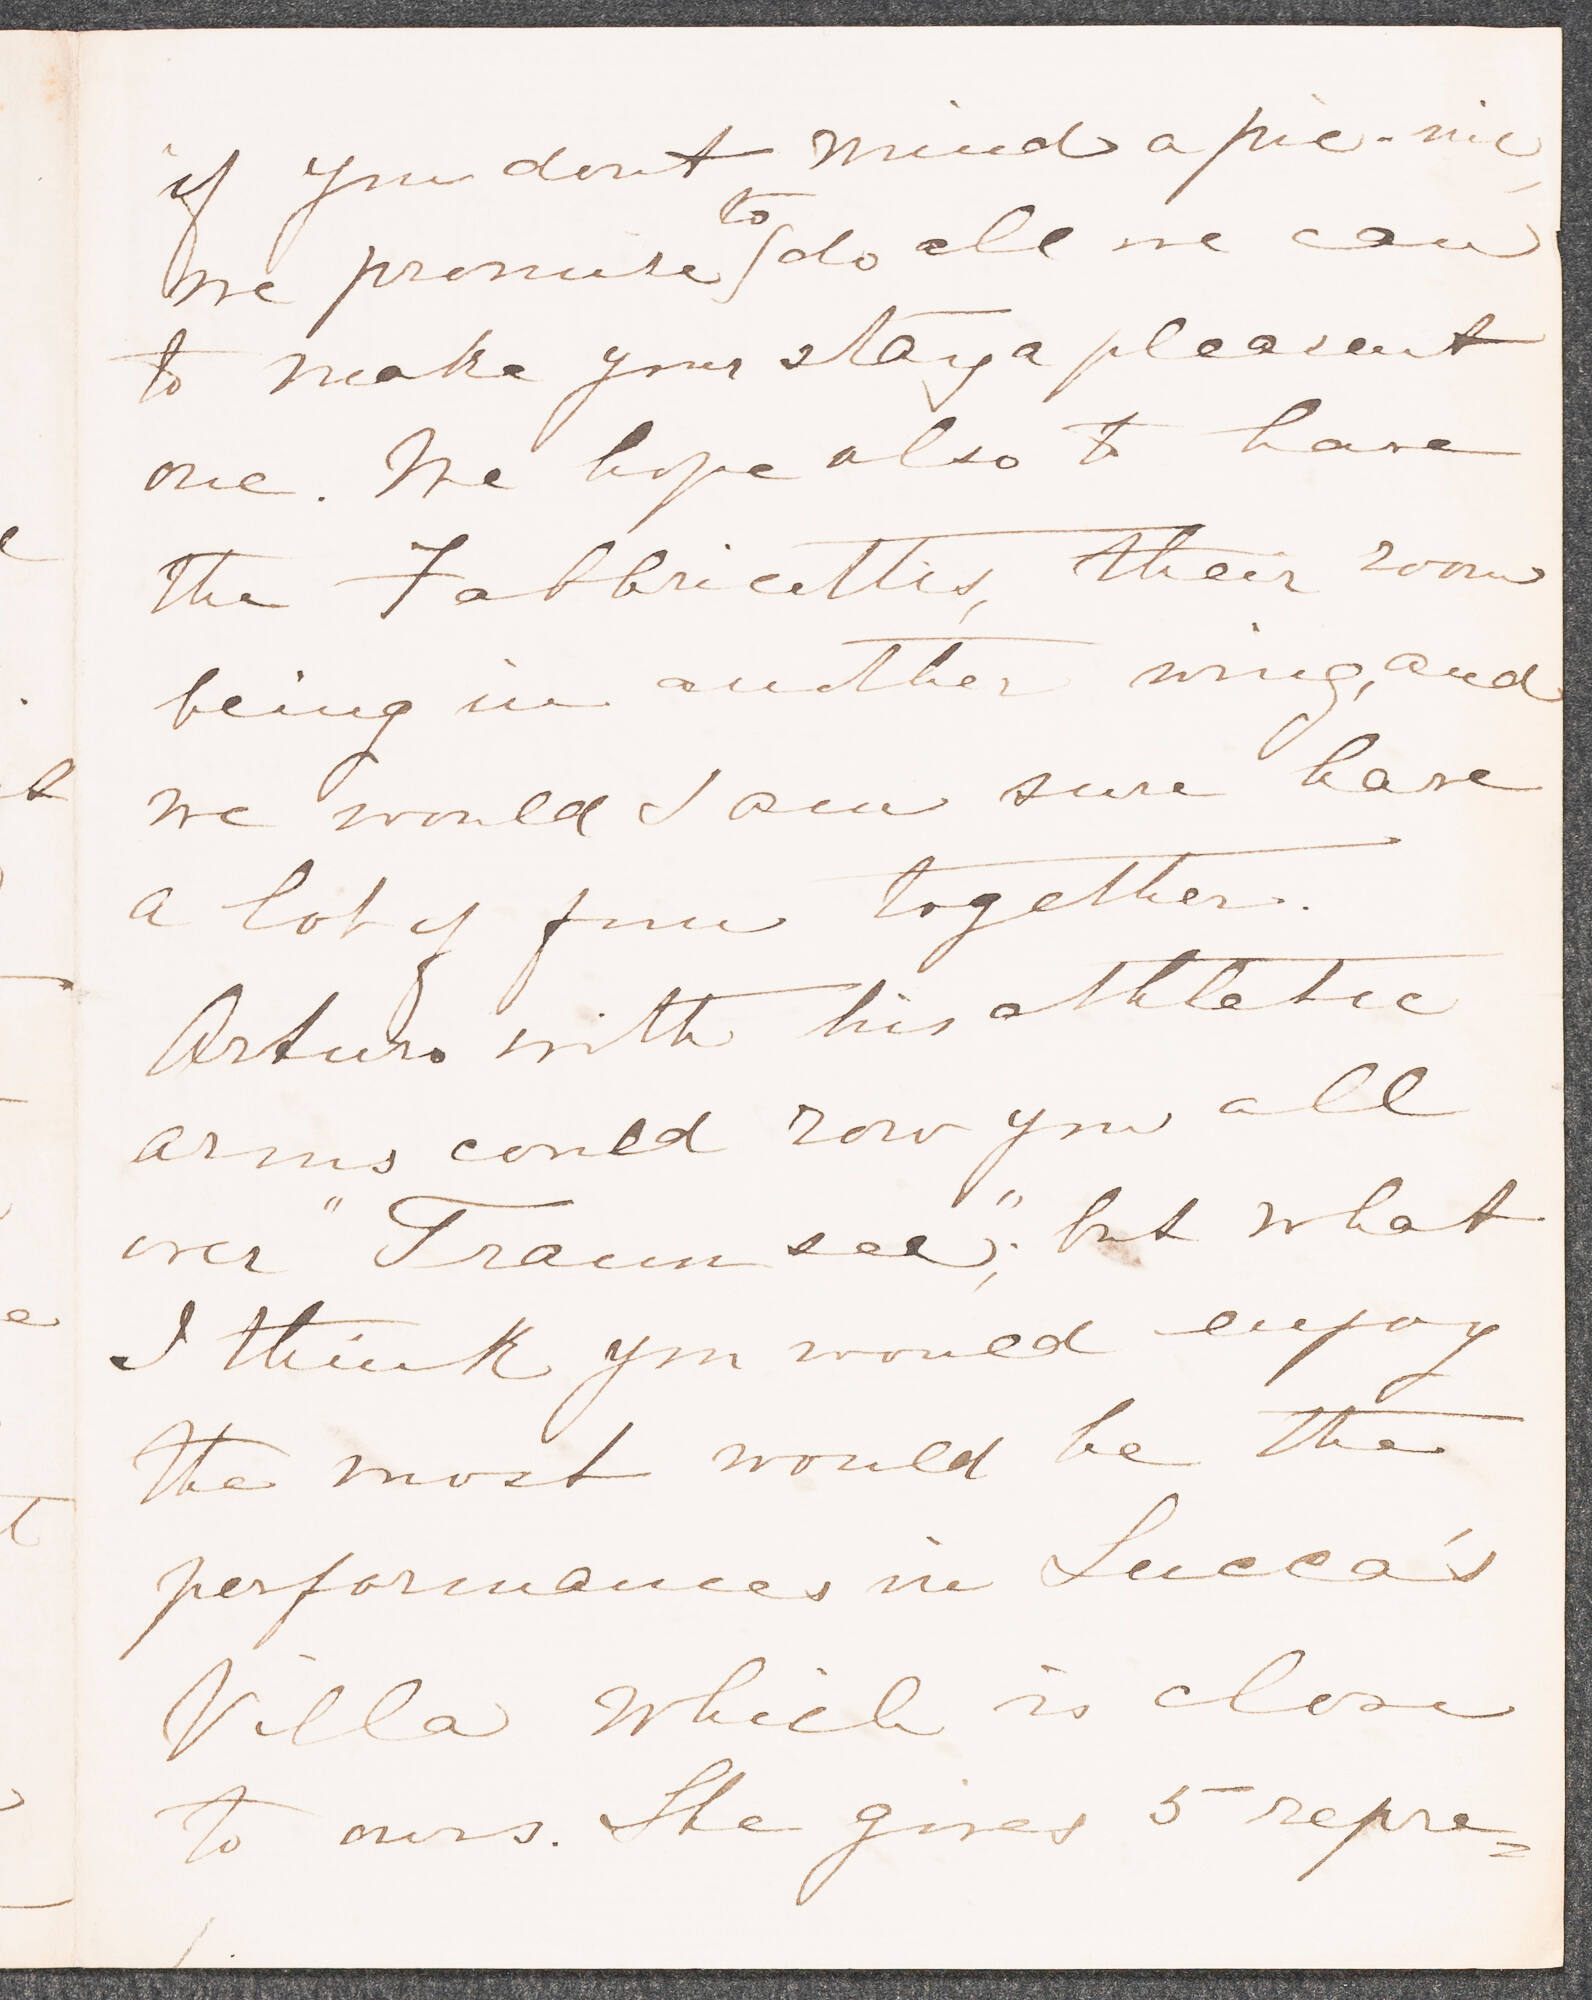 if you dont mind a pic-nic,
we promise to do all we can
to make your stay a pleasant
one. We hope also to have
the Fabbricottis, their room
being in another wing, and
we would I am sure have
a lot of fun together.
Arturo with his athletic
arms could row you all
over "Traunsee"; but what
I think you would enjoy
the most would be the
performances in Lucca's
Villa which is close
to ours. She gives 5 repre=